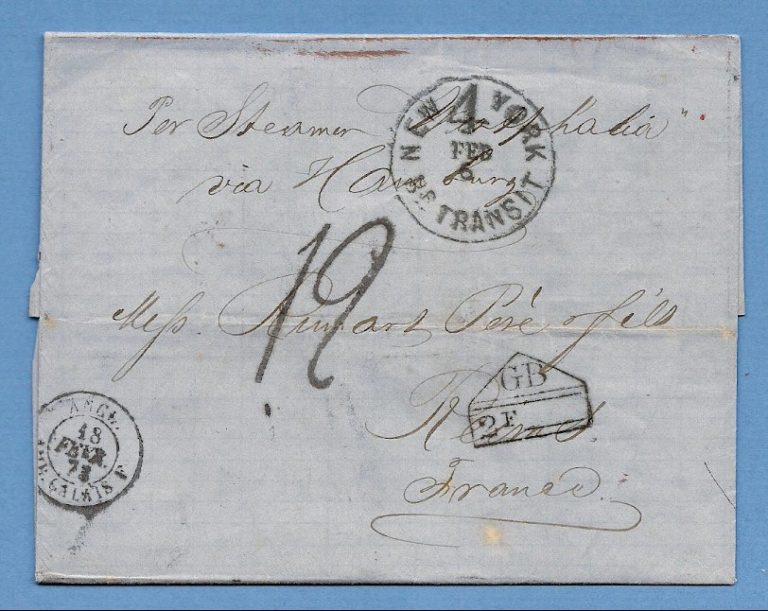 Per Steamer "Westphalia"
via Hamburg
NEW YORK
4
FEB
6
BR. TRANSIT
12
Mess Ruinart Péré & fils
GB
2F
Reims.
France.
ANGL.
18
FEVR.
73
AMB. CALAIS